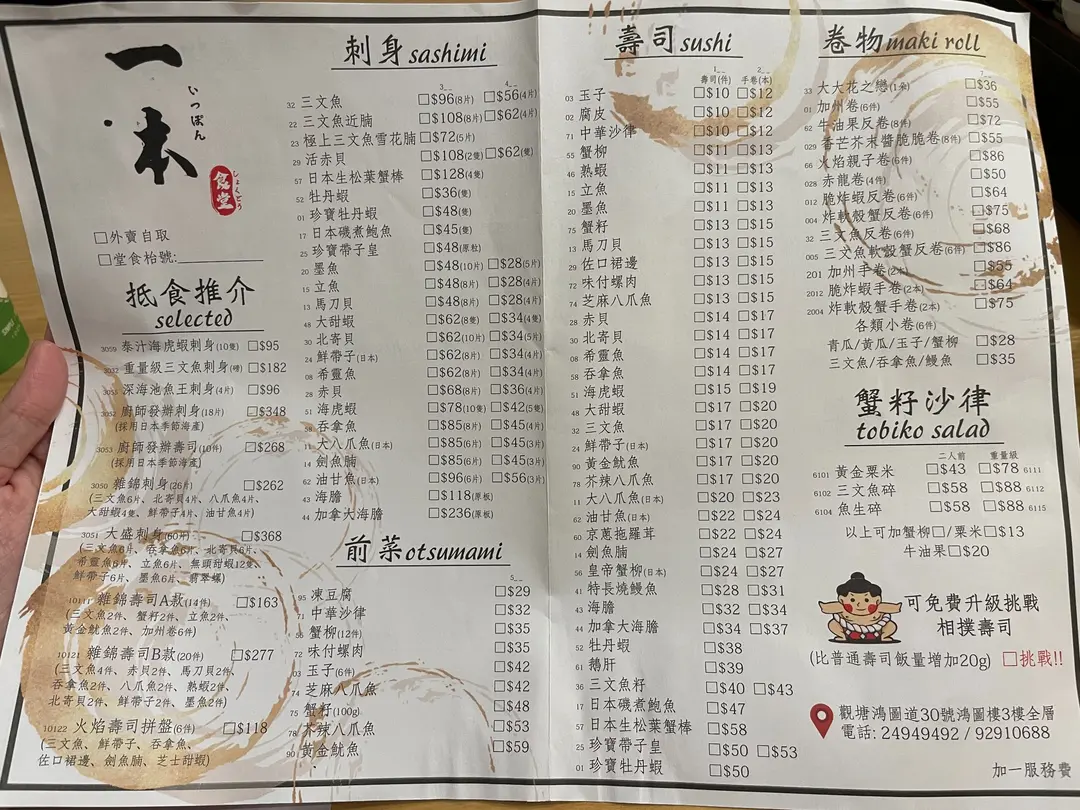 一本
いっぽん
食堂
しょくどう
☐外賣自取
☐堂食枱號:________
抵食推介
selected
3059 泰汁海虎蝦刺身(10隻) ☐$95
3032 重量級三文魚刺身(磚) ☐$182
深海池魚王刺身(4片) ☐$96
3052 廚師發辦刺身(18片) ☐$348
(採用日本季節海產)
3053 廚師發辦壽司(10件) ☐$268
(採用日本季節海產)
3050 雜錦刺身(26片) ☐$262
(三文魚6片、北寄貝4片、八爪魚4片、
大甜蝦4隻、鮮帶子4片、油甘魚4片)
3051 大盛刺身(60片) ☐$368
(三文魚6片、吞拿魚6片、北寄貝6片、
希靈魚6片、立魚6片、無頭甜蝦12隻、
鮮帶子6片、墨魚6片、翡翠螺)
雜錦壽司A款(14件) ☐$163
(三文魚2件、蟹籽2件、立魚2件、
黃金魷魚2件、加州卷6件)
10121 雜錦壽司B款(20件) ☐$277
(三文魚4件、赤貝2件、馬刀貝2件、
吞拿魚2件、八爪魚2件、熟蝦2件、
北寄貝2件、鮮帶子2件、墨魚2件)
10122 火焰壽司拼盤(6件) ☐$118
(三文魚、鮮帶子、吞拿魚、
佐口裙邊、劍魚腩、芝士甜蝦)
刺身sashimi
3__ 4__
32 三文魚 ☐$96(8片) ☐$56(4片)
22 三文魚近腩 ☐$108(8片) ☐$62(4片)
23 極上三文魚雪花腩 ☐$72(5片)
29 活赤貝 ☐$108(2隻) ☐$62(隻)
57 日本生松葉蟹棒 ☐$128(4隻)
52 牡丹蝦 ☐$36(隻)
01 珍寶牡丹蝦 ☐$48(隻)
17 日本磯煮鮑魚 ☐$45(隻)
25 珍寶帶子皇 ☐$48(原粒)
20 墨魚 ☐$48(10片) ☐$28(5片)
15 立魚 ☐$48(8片) ☐$28(4片)
13 馬刀貝 ☐$48(8片) ☐$28(4片)
48 大甜蝦 ☐$62(8隻) ☐$34(4隻)
30 北寄貝 ☐$62(10片) ☐$34(5片)
24 鮮帶子(日本) ☐$62(8片) ☐$34(4片)
08 希靈魚 ☐$62(8片) ☐$34(4片)
28 赤貝 ☐$68(8片) ☐$36(4片)
51 海虎蝦 ☐$78(10隻) ☐$42(5隻)
58 吞拿魚 ☐$85(8片) ☐$45(4片)
11 大八爪魚(日本) ☐$85(6片) ☐$45(3片)
14 劍魚腩 ☐$85(6片) ☐$45(3片)
62 油甘魚(日本) ☐$96(6片) ☐$56(3片)
43 海膽 ☐$118(原板)
44 加拿大海膽 ☐$236(原板)
前菜otsumami
5__
95 凍豆腐 ☐$29
71 中華沙律 ☐$32
56 蟹柳(12件) ☐$35
72 味付螺肉 ☐$35
03 玉子(6件) ☐$42
74 芝麻八爪魚 ☐$42
75 蟹籽(100g) ☐$48
78 芥辣八爪魚 ☐$53
90 黃金魷魚 ☐$59
壽司sushi
1__ 2__
壽司(件) 手卷(本)
03 玉子 ☐$10 ☐$12
02 腐皮 ☐$10 ☐$12
71 中華沙律 ☐$10 ☐$12
55 蟹柳 ☐$11 ☐$13
46 熟蝦 ☐$11 ☐$13
15 立魚 ☐$11 ☐$13
20 墨魚 ☐$11 ☐$13
75 蟹籽 ☐$13 ☐$15
13 馬刀貝 ☐$13 ☐$15
29 佐口裙邊 ☐$13 ☐$15
72 味付螺肉 ☐$13 ☐$15
74 芝麻八爪魚 ☐$13 ☐$15
28 赤貝 ☐$14 ☐$17
30 北寄貝 ☐$14 ☐$17
08 希靈魚 ☐$14 ☐$17
58 吞拿魚 ☐$14 ☐$17
51 海虎蝦 ☐$15 ☐$19
48 大甜蝦 ☐$17 ☐$20
32 三文魚 ☐$17 ☐$20
24 鮮帶子(日本) ☐$17 ☐$20
90 黃金魷魚 ☐$17 ☐$20
78 芥辣八爪魚 ☐$17 ☐$20
11 大八爪魚(日本) ☐$20 ☐$23
62 油甘魚(日本) ☐$22 ☐$24
60 京蔥拖羅茸 ☐$22 ☐$24
14 劍魚腩 ☐$24 ☐$27
56 皇帝蟹柳(日本) ☐$24 ☐$27
41 特長燒鰻魚 ☐$28 ☐$31
43 海膽 ☐$32 ☐$34
44 加拿大海膽 ☐$34 ☐$37
52 牡丹蝦 ☐$38
61 鵝肝 ☐$39
36 三文魚籽 ☐$40 ☐$43
17 日本磯煮鮑魚 ☐$47
57 日本生松葉蟹棒 ☐$58
25 珍寶帶子皇 ☐$50 ☐$53
01 珍寶牡丹蝦 ☐$50
卷物maki roll
7__
33 大大花之戀(1朵) ☐$36
01 加州卷(6件) ☐$55
62 牛油果反卷(8件) ☐$72
029 香芒芥末醬脆脆卷(8件) ☐$55
66 火焰親子卷(6件) ☐$86
028 赤龍卷(4件) ☐$50
012 脆炸蝦反卷(6件) ☐$64
004 炸軟殼蟹反卷(6件) ☐$75
32 三文魚反卷(6件) ☐$68
005 三文魚軟殼蟹反卷(6件) ☐$86
201 加州手卷(2本) ☐$55
2012 脆炸蝦手卷(2本) ☐$64
2004 炸軟殼蟹手卷(2本) ☐$75
各類小卷(6件)
青瓜/黃瓜/玉子/蟹柳 ☐$28
三文魚/吞拿魚/鰻魚 ☐$35
蟹籽沙律
tobiko salad
二人前 重量級
6101 黃金粟米 ☐$43 ☐$78 6111
6102 三文魚碎 ☐$58 ☐$88 6112
6104 魚生碎 ☐$58 ☐$88 6115
以上可加蟹柳☐/粟米☐$13
牛油果☐$20
可免費升級挑戰
相撲壽司
(比普通壽司飯量增加20g) ☐挑戰!!
觀塘鴻圖道30號鴻圖樓3樓全層
電話: 24949492 / 92910688
加一服務費